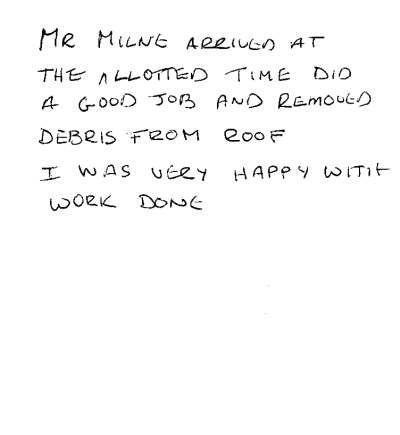 MR MILNE ARRIVED AT
THE ALLOTTED TIME DID
A GOOD JOB AND REMOVED
DEBRIS FROM ROOF
I WAS VERY HAPPY WITH
WORK DONE